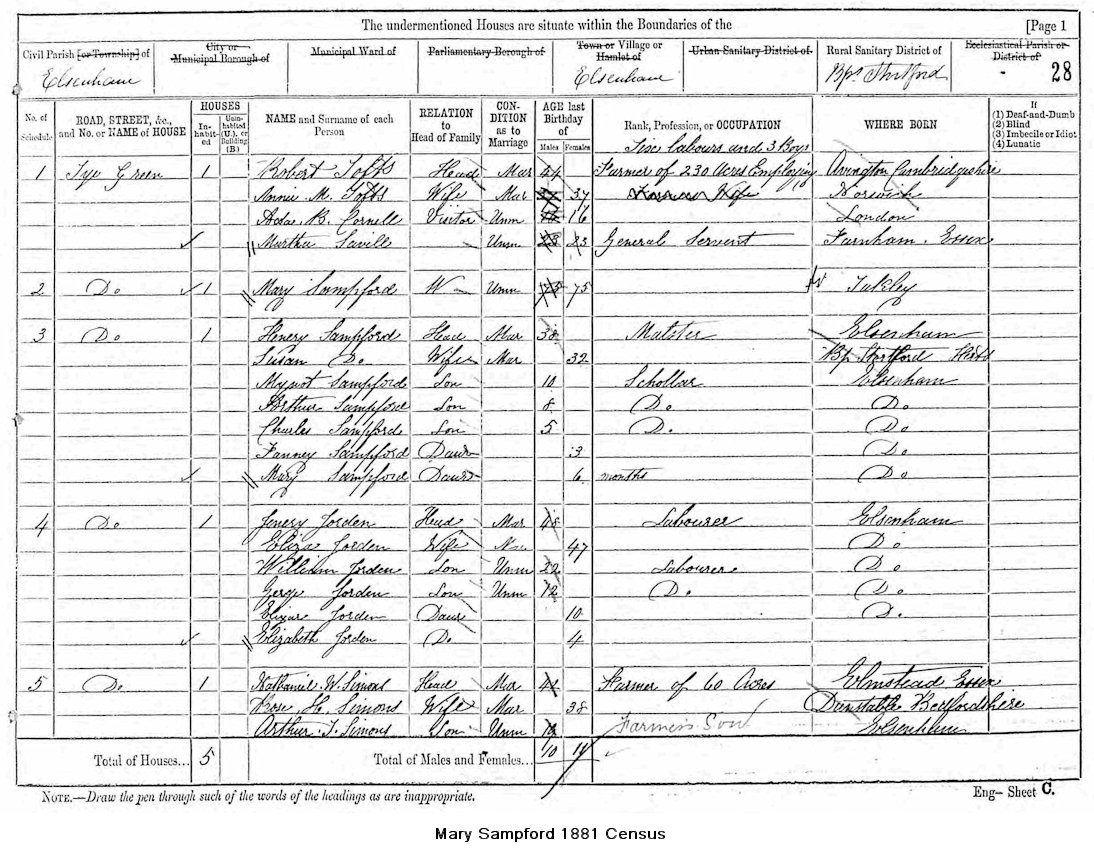 The undermentioned Houses are situate within the Boundaries of the [Page 1
Civil Parish [or Township] of City or Municipal Borough of Municipal Ward of Parliamentary Borough of Town or Village or Hamlet of Urban Sanitary District of Rural Sanitary District of Ecclesiastical Parish or District of
Elsenham Elsenham 28
No. of Schedule ROAD, STREET, &c., and No. or NAME of HOUSE HOUSES Inhabited Uninhabited (U.), or Building (B) NAME and Surname of each Person RELATION to Head of Family CONDITION as to Marriage AGE last Birthday of Males Females Rank, Profession, or OCCUPATION WHERE BORN If (1) Deaf-and-Dumb (2) Blind (3) Imbecile or Idiot (4) Lunatic
Six labours and 3 Boys
1 Tye Green 1 Robert Tofts Head Mar 44 Farmer of 230 Acres Employing
Annie M. Tofts Wife Mar 37 Farmers Wife Norwich
Ada B. Cornell Visitor Unm 16 London
Martha Savill Unm 23 General Servent Farnham. Essex
2 Do 1 Mary Sampford W Unm 75 Takley
3 Do 1 Henery Sampford Head Mar 38 Malster Elsenham
Susan Do Wife Mar 32 Bp Stortford Herts
Mynot Sampford Son 10 Schollar Elsenham
Arthur Sampford Son 8 Do Do
Charles Sampford Son 5 Do Do
Fanney Sampford Daur 3 Do
Mary Sampford Daur 6 months Do
4 Do 1 Jenery Jorden Head Mar 48 Labourer Elsenham
Eliza Jorden Wife 47 Do
William Jorden Son Unm 22 Labourer Do
Gerge Jorden Son Unm 12 Do Do
Elizar Jorden Daur 10 Do
Elizabeth Jorden Do 4
5 Do 1 Nathaniel W. Simons Head Mar 44 Farmer of 60 Acres Elmstead Essex
Rose H. Simons Wife Mar 38 Dunstable Bedfordshire
Arthur J. Simons Son Unm Farmers Son Elsenham
Total of Houses... 5 Total of Males and Females... 10 11
NOTE.—Draw the pen through such of the words of the headings as are inappropriate. Eng— Sheet C.
Mary Sampford 1881 Census